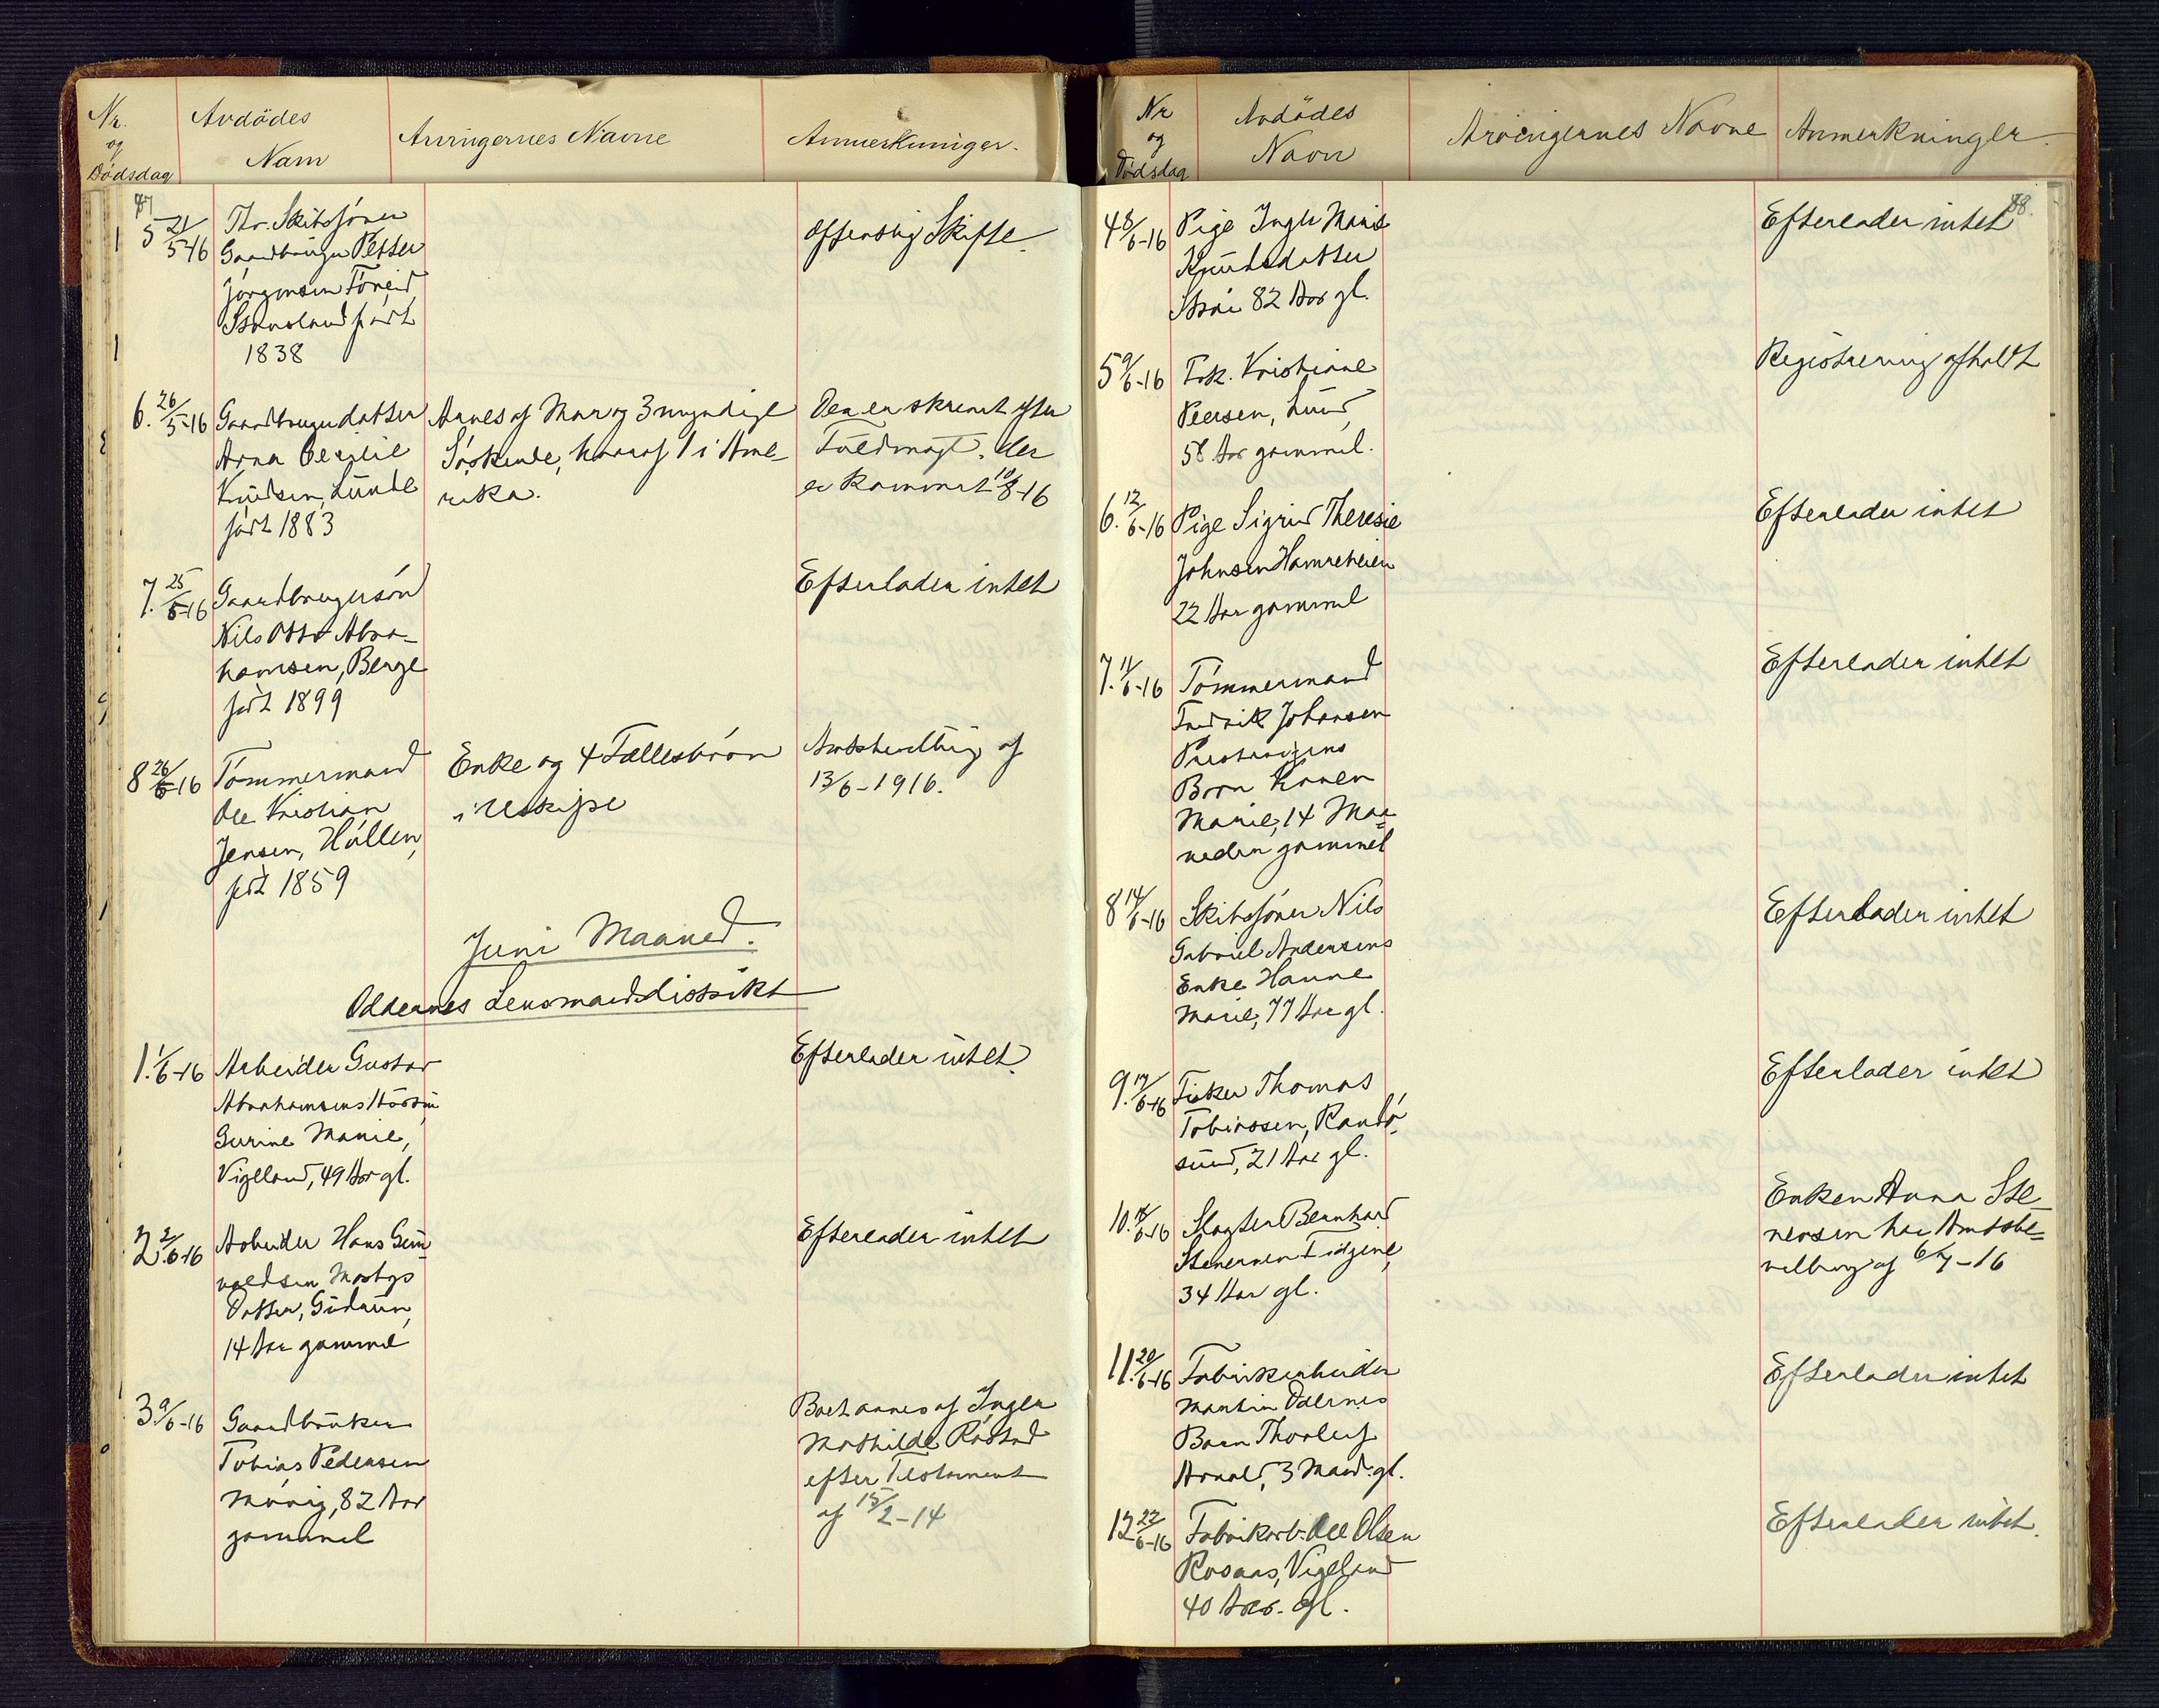 Nr.
og
Dödsdag
Avdödes
Navn
Arvingernes Navne
Anmerkninger.
87
5 21/5-16
Thv. Skibsfórer
Gaardbruger Petter
Jórgensen Fóreid
Stensland fódt
1838
Offentlig Skifte.
6. 26/5-16
Gaardbrugerdatter
Anna Cecilie
Knudsen, Lunde
fódt 1883
Arves af Mor og 3 myndige
Sóskende, hvoraf 1 i Ame-
rika.
Den er skrevet efter
Fuldmagt. der
er kommet 10/8-16
7. 25/5-16
Gaardbrugersón
Nils Otto Abra-
hamsen, Berge
fódt 1899
Efterlader intet
8 26/5-16
Tómmermand
Ole Kristian
Jensen, Hóllen,
fódt 1859
Enke og 4 Fællesbórn
i Uskifte
Amtsbevilling af
13/6-1916.
Juni Maaned.
Oddernes Lensmandsdistrikt
1. 1/6-16
Arbeider Gustav
Abrahamsens Hustru
Gurine Marie,
Vigeland, 49 Aar gl.
Efterlader intet.
2. 2/6-16
Arbeider Hans Gun-
valdsen Mosbys
Datter, Gudrun,
14 Aar gammel
Efterlader intet
3. 9/6-16
Gaardbruker
Tobias Pedersen
Móvig, 82 Aar
gammel
Boet arves af Inger
Mathilde Róstad
efter Testament
af 15/2-14
Nr
og
Dödsdag
Avdödes
Navn
Arvingernes Navne
Anmerkninger.
88.
4 8/6-16
Pige Inger Marie
Knudsdatter
Strai 82 Aar gl.
Efterlader intet
5 9/6-16
Frk. Kristiane
Peersen, Lund,
58 Aar gammel.
Registrering afholdt
6. 12/6-16
Pige Sigrid Theresie
Johnsen Hamreheien
22 Aar gammel
Efterlader intet
7. 11/6-16
Tómmermand
Fredrik Johansen
Prestvigens
Barn Karen
Marie, 14 Maa=
neder gammel
Efterlader intet
8 14/6-16
Skibsfórer Nils
Gabriel Andersens
Enke Hanne
Marie, 77 Aar gl.
Efterlader intet
9. 17/6-16
Fisker Thomas
Tobiassen, Randó-
sund, 21 Aar gl.
Efterlader intet
10. 18/6-16
Slagter Bernhard
Stenersen Eidjene,
34 Aar gl.
Enken Anna Ste-
nersen har Amtsbe=
villing af 6/7-16
11. 20/6-16
Fabrikarbeider
Martin Odernes
Barn Thorleif
Arnold, 3 Maad. gl.
Efterlader intet
12 22/6-16
Fabrikarb. Ole Olsen
Rosaas, Vigeland
40 Aar. gl.
Efterlader intet.